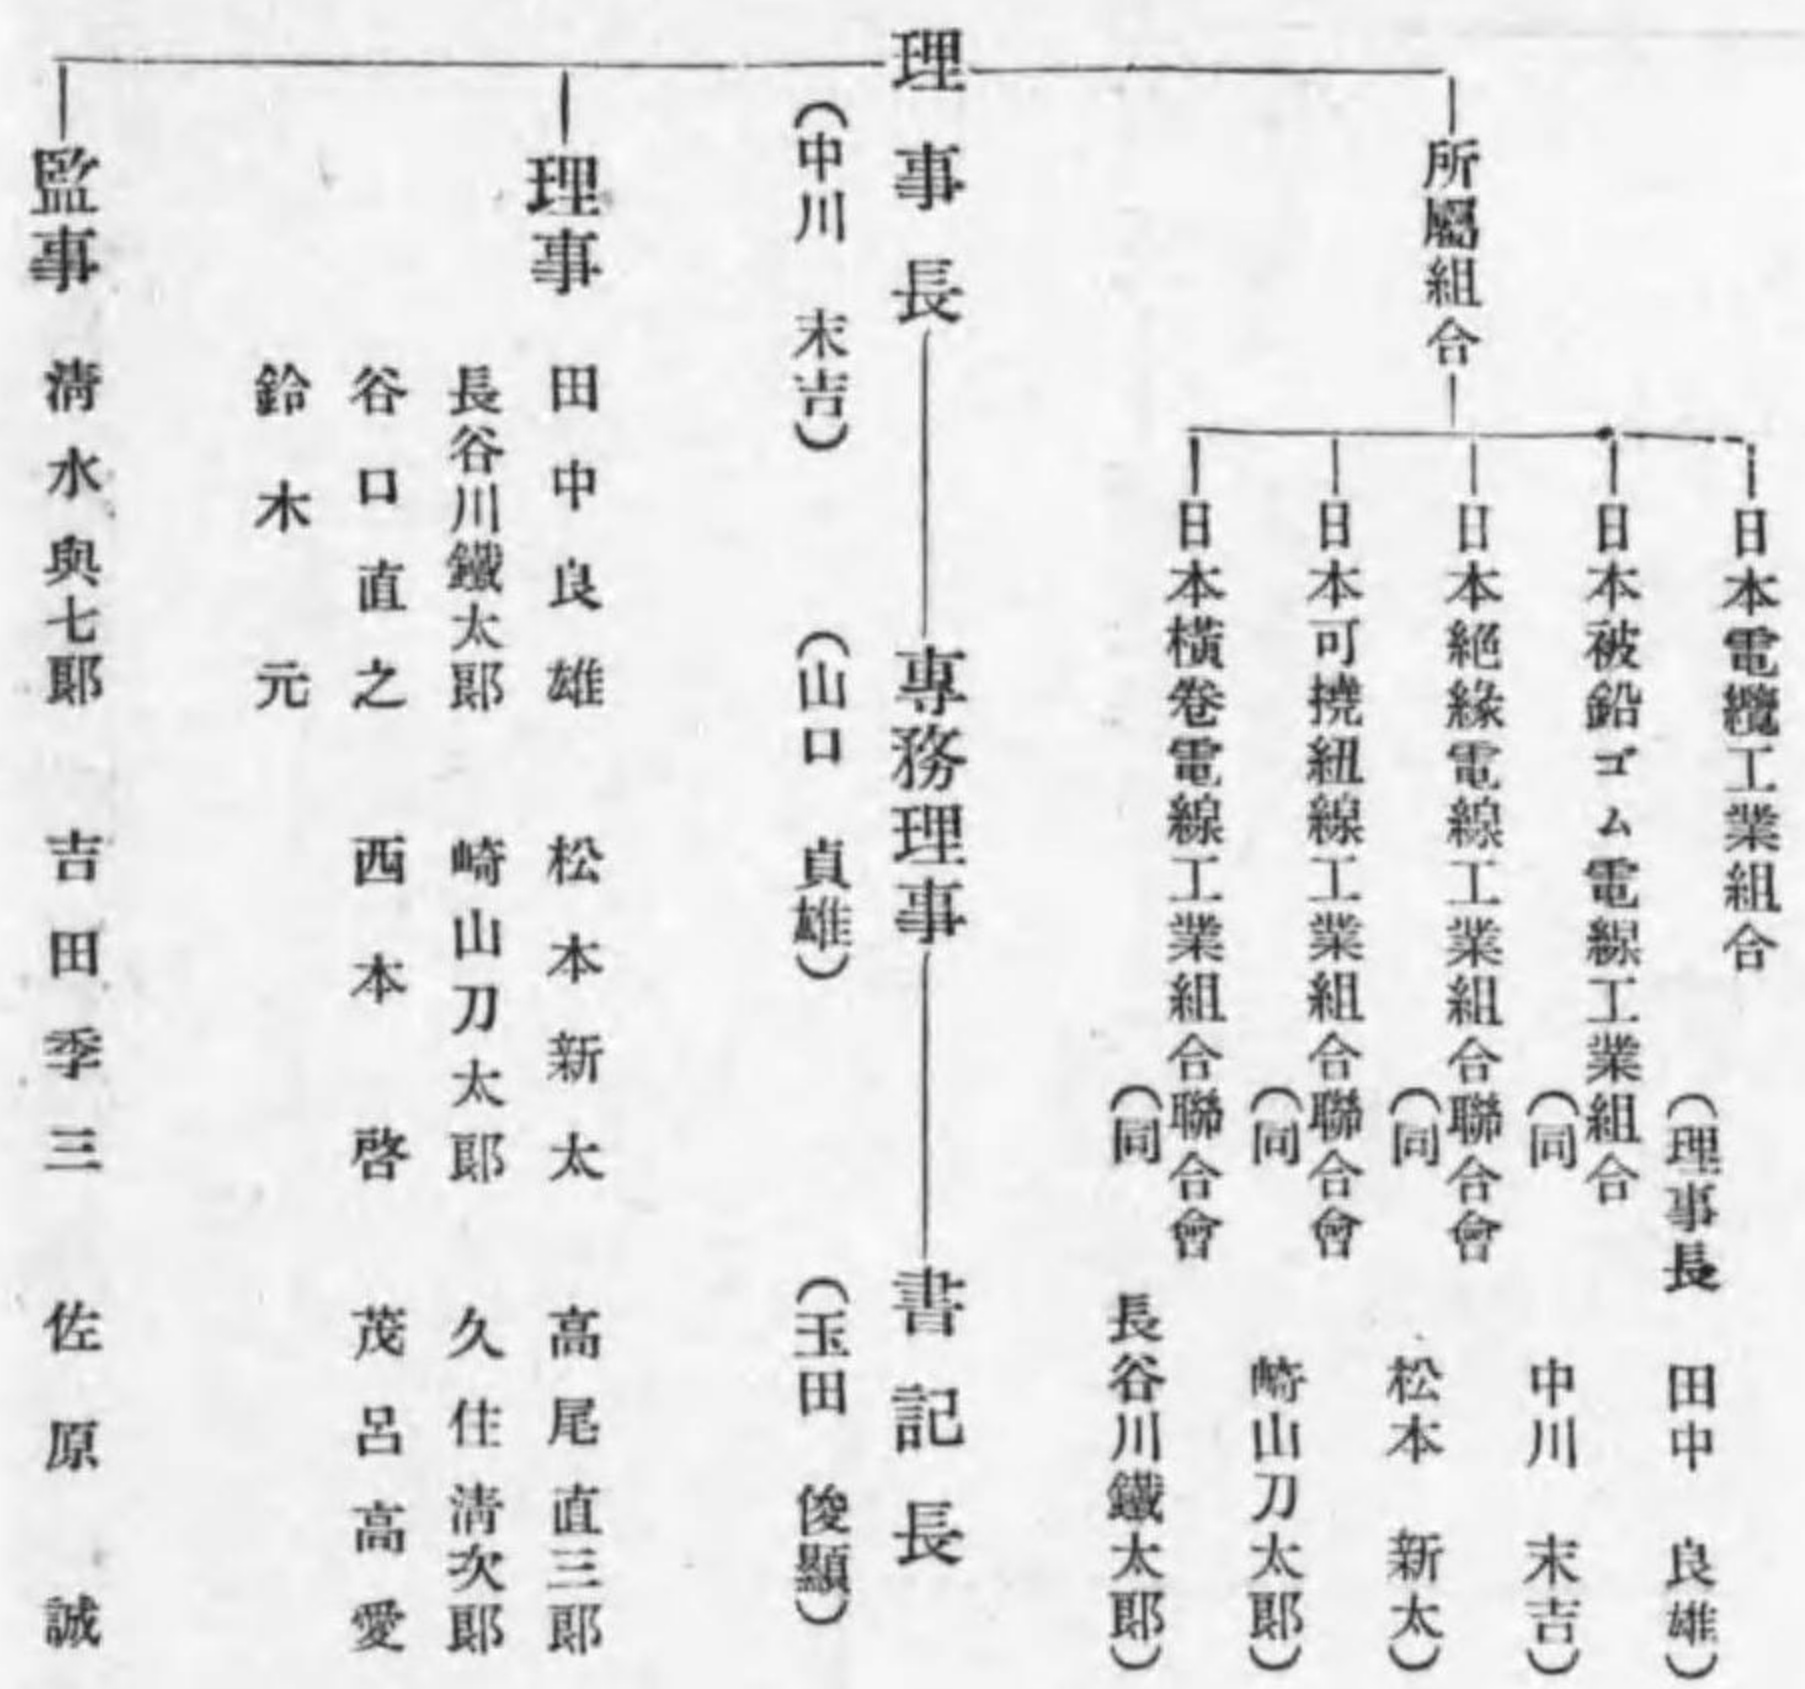 所屬組合
日本電纜工業組合
(理事長 田中 良雄)
日本被鉛ゴム電線工業組合
(同 中川 末吉)
日本絕緣電線工業組合聯合會
(同 松本 新太)
日本可撓紐線工業組合聯合會
(同 崎山刀太郞)
日本橫卷電線工業組合聯合會
(同 長谷川鐵太郞)
理事長 專務理事 書記長
(中川 末吉) (山口 貞雄) (玉田 俊顯)
理事 田中良雄 松本新太 高尾直三郞
長谷川鐵太郞 崎山刀太郞 久住淸次郞
谷口直之 西本啓 茂呂高愛
鈴木元
監事 淸水與七郞 吉田季三 佐原誠